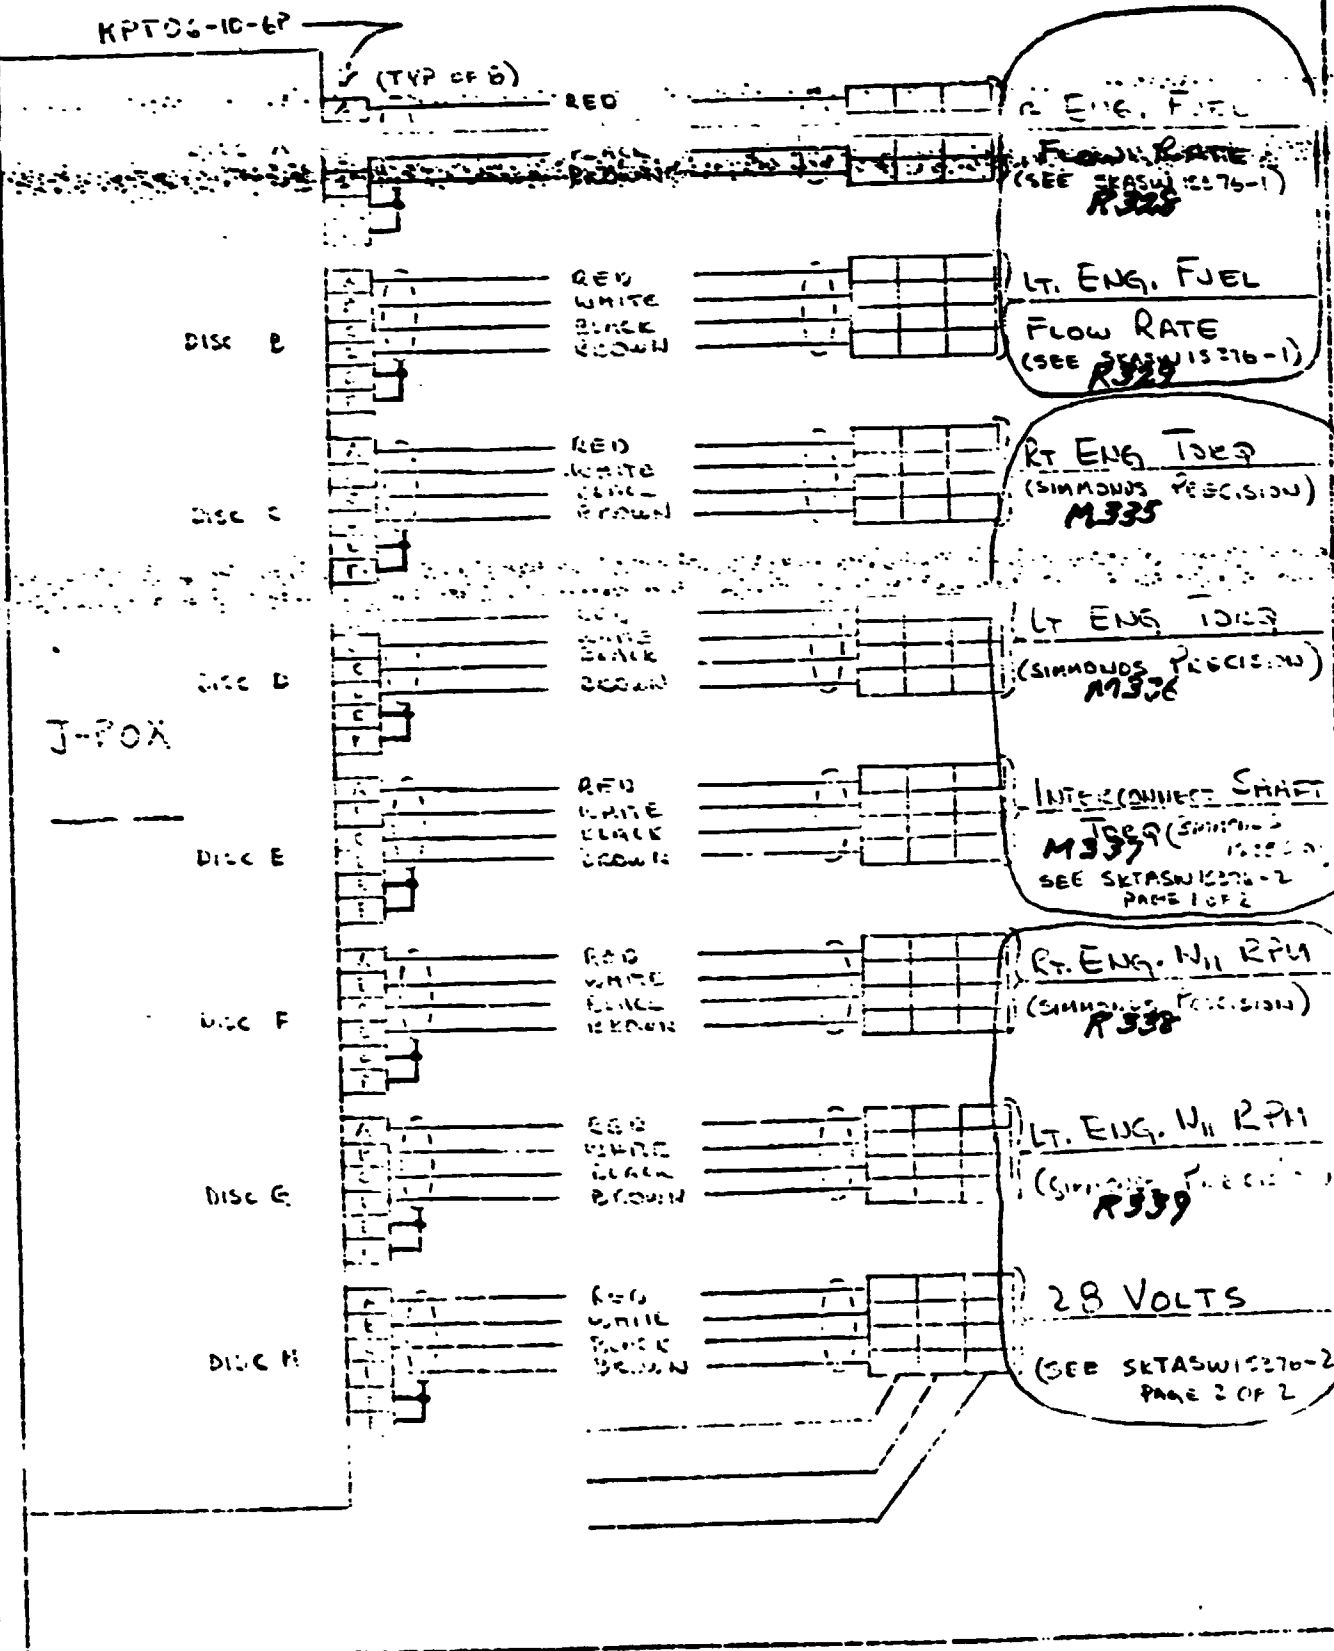 KPT06-10-6P
(TYP OF 8)
RED
ENG. FUEL
BLACK
BROWN
FLOW RATE
(SEE SKASW15376-1)
R328
DISC B
RED
WHITE
BLACK
BROWN
LT. ENG. FUEL
FLOW RATE
(SEE SKASW15376-1)
R329
DISC C
RED
WHITE
BLACK
BROWN
RT ENG TORQ
(SIMMONDS PRECISION)
M335
DISC D
WHITE
BLACK
BROWN
LT ENG TORQ
(SIMMONDS PRECISION)
M336
J-BOX
DISC E
RED
WHITE
BLACK
BROWN
INTERCONNECT SHAFT
TORQ (SIMMONDS
M337
SEE SKTASW15376-2
PAGE 1 OF 2
DISC F
RED
WHITE
BLACK
BROWN
RT. ENG. N11 RPM
(SIMMONDS PRECISION)
R338
DISC G
RED
WHITE
BLACK
BROWN
LT. ENG. N11 RPM
(SIMMONDS PRECISION)
R339
DISC H
RED
WHITE
BLACK
BROWN
28 VOLTS
(SEE SKTASW15376-2
PAGE 2 OF 2